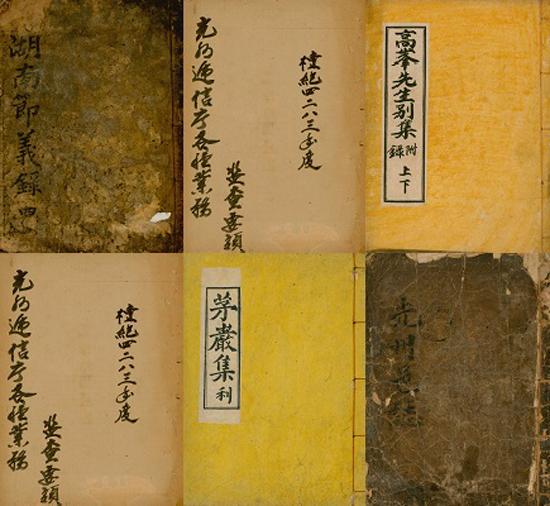 湖南節義錄 四
檀紀四二八三年度
光州遞信庁各種業務
查要領
高峯先生别集
附錄
上下
檀紀四二八三年度
光州遞信庁各種業務
查要領
茅巖集 利
光州邑誌